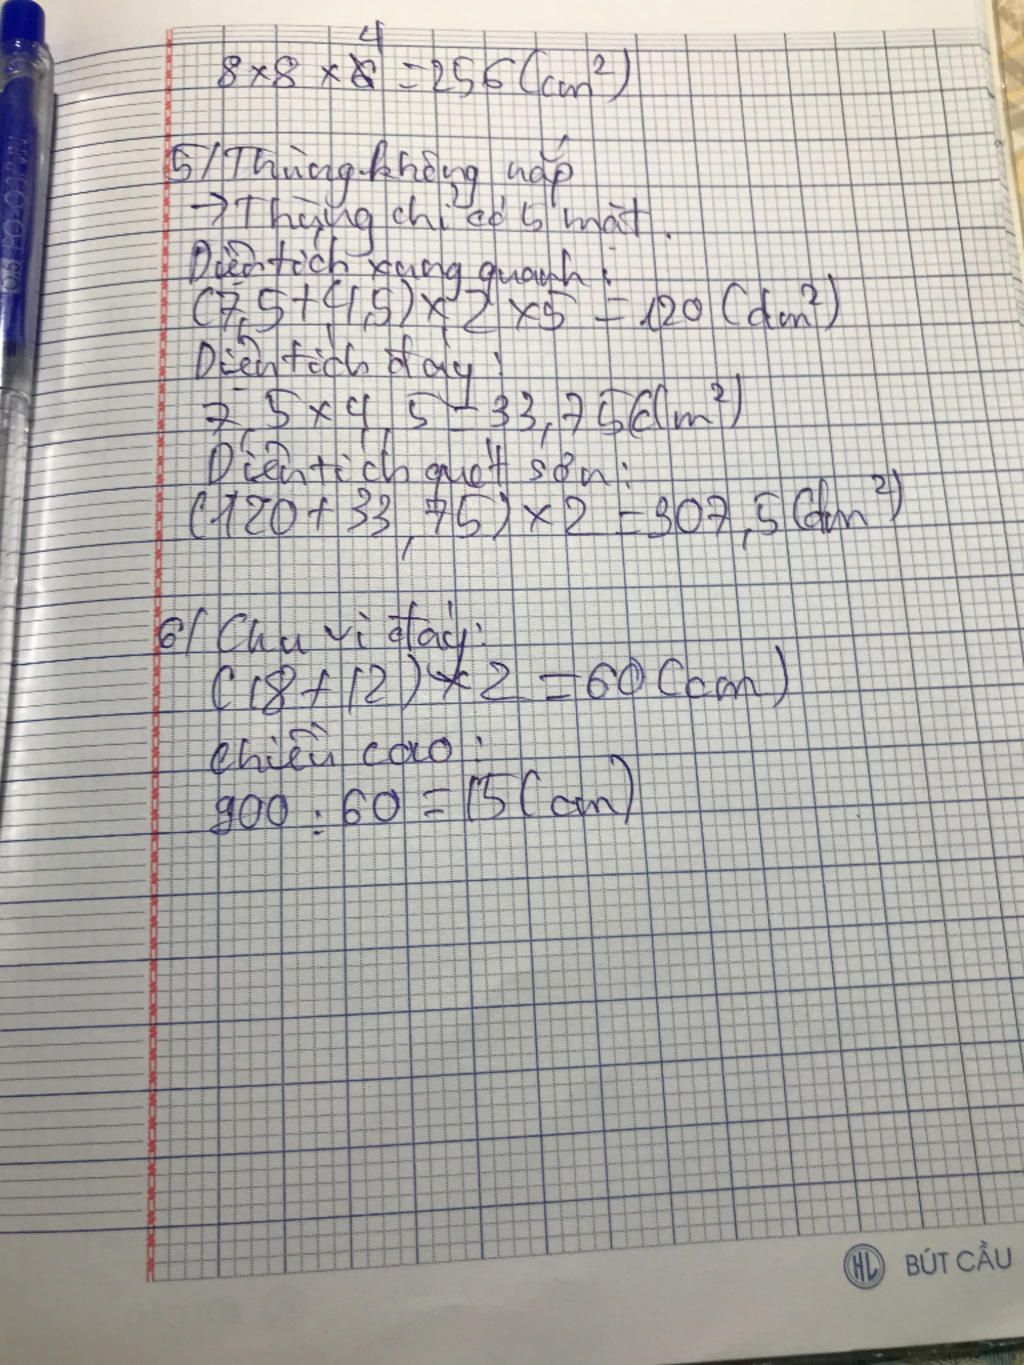 4
8 × 8 × 6 = 256 (cm²)
5/ Thùng không nắp
→ Thùng chỉ có 5 mặt.
Diện tích xung quanh:
(7,5 + 4,5) × 2 × 5 = 120 (dm²)
Diện tích đáy:
7,5 × 4,5 = 33,75 (dm²)
Diện tích quét sơn:
(120 + 33,75) × 2 = 307,5 (dm²)
6/ Chu vi đáy:
(18 + 12) × 2 = 60 (cm)
chiều cao:
900 : 60 = 15 (cm)
HL BÚT CẦU